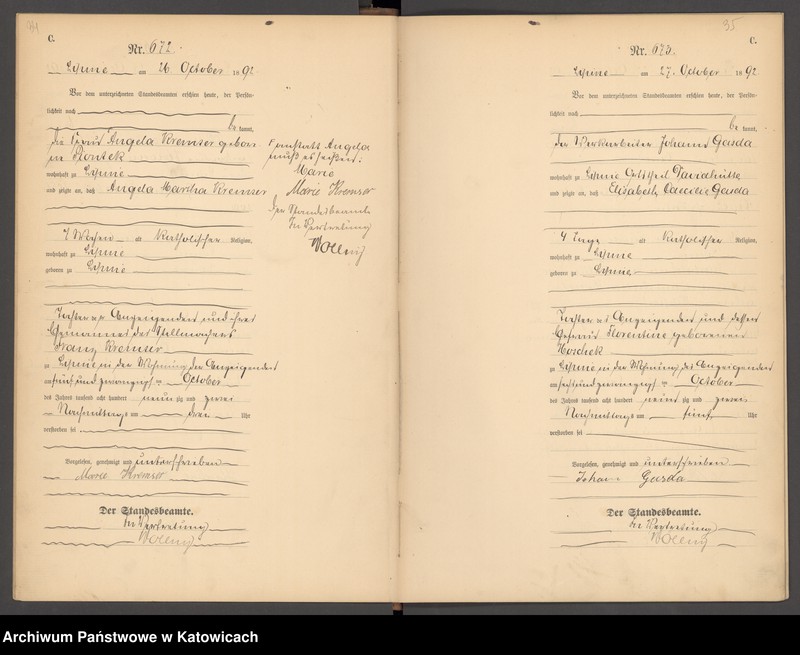 C.
Nr. 672.
Lipine am 26 October 1892
Vor dem unterzeichneten Standesbeamten erschien heute, der Persön-
lichkeit nach
be kannt,
die Frau Angela Kremser gebore-
ne
wohnhaft zu Lipine
und zeigte an, daß Angela Martha Kremser
7 Wochen alt katholischer Religion,
wohnhaft zu Lipine
geboren zu Lipine
Tochter der Anzeigenden und ihres
Ehemannes des Stellmachers
Franz Kremser
zu Lipine in der Wohnung der Anzeigenden
am fünf und zwanzigsten October
des Jahres tausend acht hundert neun zig und zwei
Nachmittags um drei Uhr
verstorben sei
Vorgelesen, genehmigt und unterschrieben
Marie Kremser
Der Standesbeamte.
In Vertretung
Wolny
anstatt Angela
muß es heißen:
Marie
Marie Kremser
Der Standesbeamte
In Vertretung
Wolny
95
C.
Nr. 673.
Lipine am 27. October 1892
Vor dem unterzeichneten Standesbeamten erschien heute, der Persön-
lichkeit nach
be kannt,
der Werkarbeiter Johann Gasda
wohnhaft zu Lipine Ortstheil Davidhütte
und zeigte an, daß Elisabeth Gasda
4 Tage alt katholischer Religion,
wohnhaft zu Lipine
geboren zu Lipine
Tochter des Anzeigenden und dessen
Ehefrau Florentine geborenen
Koschek
zu Lipine in der Wohnung des Anzeigenden
am sechs und zwanzigsten October
des Jahres tausend acht hundert neun zig und zwei
Nachmittags um fünf Uhr
verstorben sei
Vorgelesen, genehmigt und unterschrieben
Johann Gasda
Der Standesbeamte.
In Vertretung
Wolny
Archiwum Państwowe w Katowicach